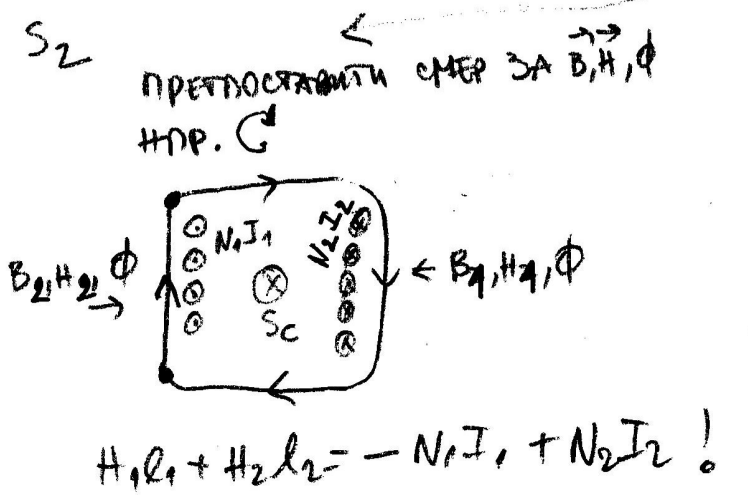 S₂
ПРЕТПОСТАВИТИ СМЕР ЗА B⃗, H⃗, Φ
НПР.
N₁I₁
N₂I₂
B₂, H₂, Φ
B₁, H₁, Φ
S_C
H₁l₁ + H₂l₂ = − N₁I₁ + N₂I₂ !